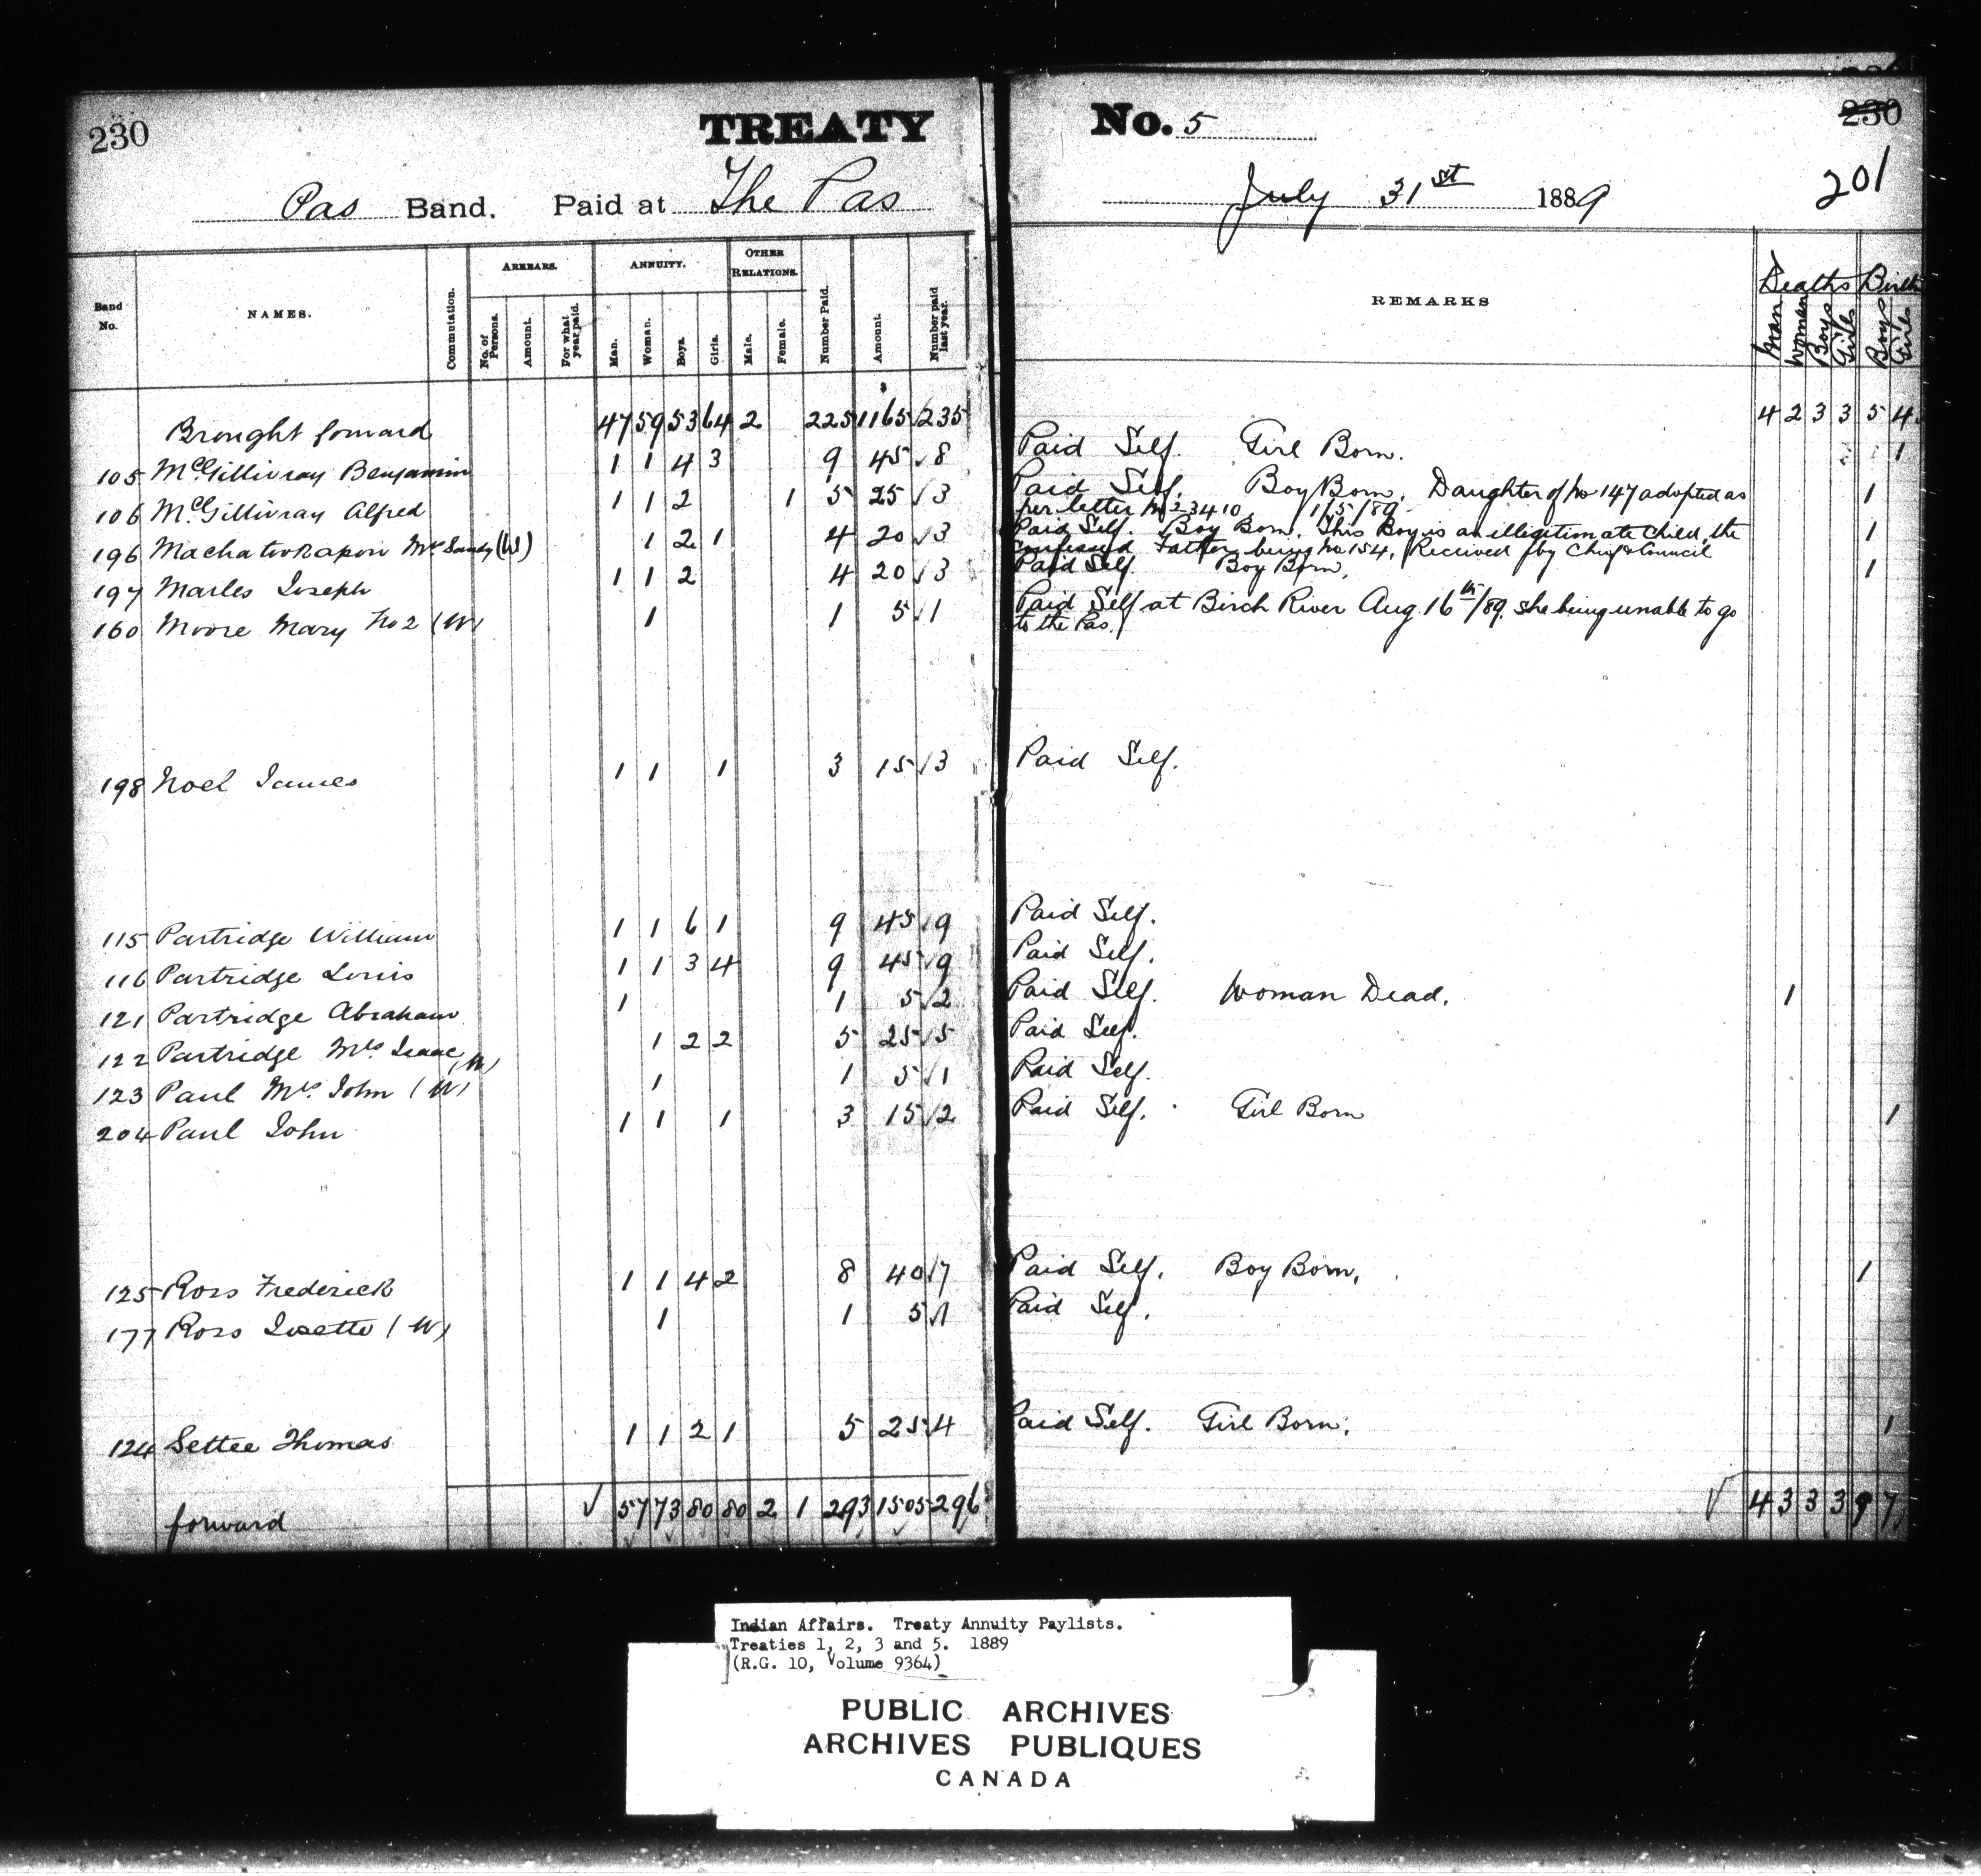 230 TREATY No. 5 230
201
Pas Band. Paid at The Pas July 31st 1889
Band No. NAMES. Commutation. ARREARS. ANNUITY. OTHER RELATIONS. Number Paid. Amount. Number paid last year. REMARKS Deaths Births
No. of Persons. Amount. For what year paid. Man. Woman. Boys. Girls. Male. Female. Man Woman Boys Girls Boys Girls
Brought forward 47 59 53 64 2 225 1165 235 4 2 3 3 5 4
105 McGillivray Benjamin 1 1 4 3 9 45 8 Paid Self. Girl Born. 1
106 McGillivray Alfred 1 1 2 1 5 25 3 Paid Self. Boy Born. Daughter of No 147 adopted as 1
per letter No 23410 1/5/89
196 Mrs Sandy (W) 1 2 1 4 20 3 Paid Self. Boy Born. This Boy is an illegitimate child, the 1
confessed Father being No 154, Received by Chief & Council
197 Marles Joseph 1 1 2 4 20 3 Paid Self Boy Born. 1
160 Moore Mary No 2 (W) 1 1 5 1 Paid Self at Birch River Aug. 16th/89. she being unable to go
to the Pas.
198 Noel James 1 1 1 3 15 3 Paid Self.
115 Partridge William 1 1 6 1 9 45 9 Paid Self.
116 Partridge Louis 1 1 3 4 9 45 9 Paid Self.
121 Partridge Abraham 1 1 5 2 Paid Self. Woman Dead. 1
122 Partridge Mrs Isaac (W) 1 2 2 5 25 5 Paid Self.
123 Paul Mrs John (W) 1 1 5 1 Paid Self.
204 Paul John 1 1 1 3 15 2 Paid Self. Girl Born 1
125 Ross Frederick 1 1 4 2 8 40 7 Paid Self. Boy Born. 1
177 Ross Lisette (W) 1 1 5 1 Paid Self.
124 Settee Thomas 1 1 2 1 5 25 4 Paid Self. Girl Born. 1
forward √ 57 73 80 80 2 1 293 1505 296 √ 4 3 3 3 9 7
Indian Affairs. Treaty Annuity Paylists.
Treaties 1, 2, 3 and 5. 1889
(R.G. 10, Volume 9364)
PUBLIC ARCHIVES
ARCHIVES PUBLIQUES
CANADA